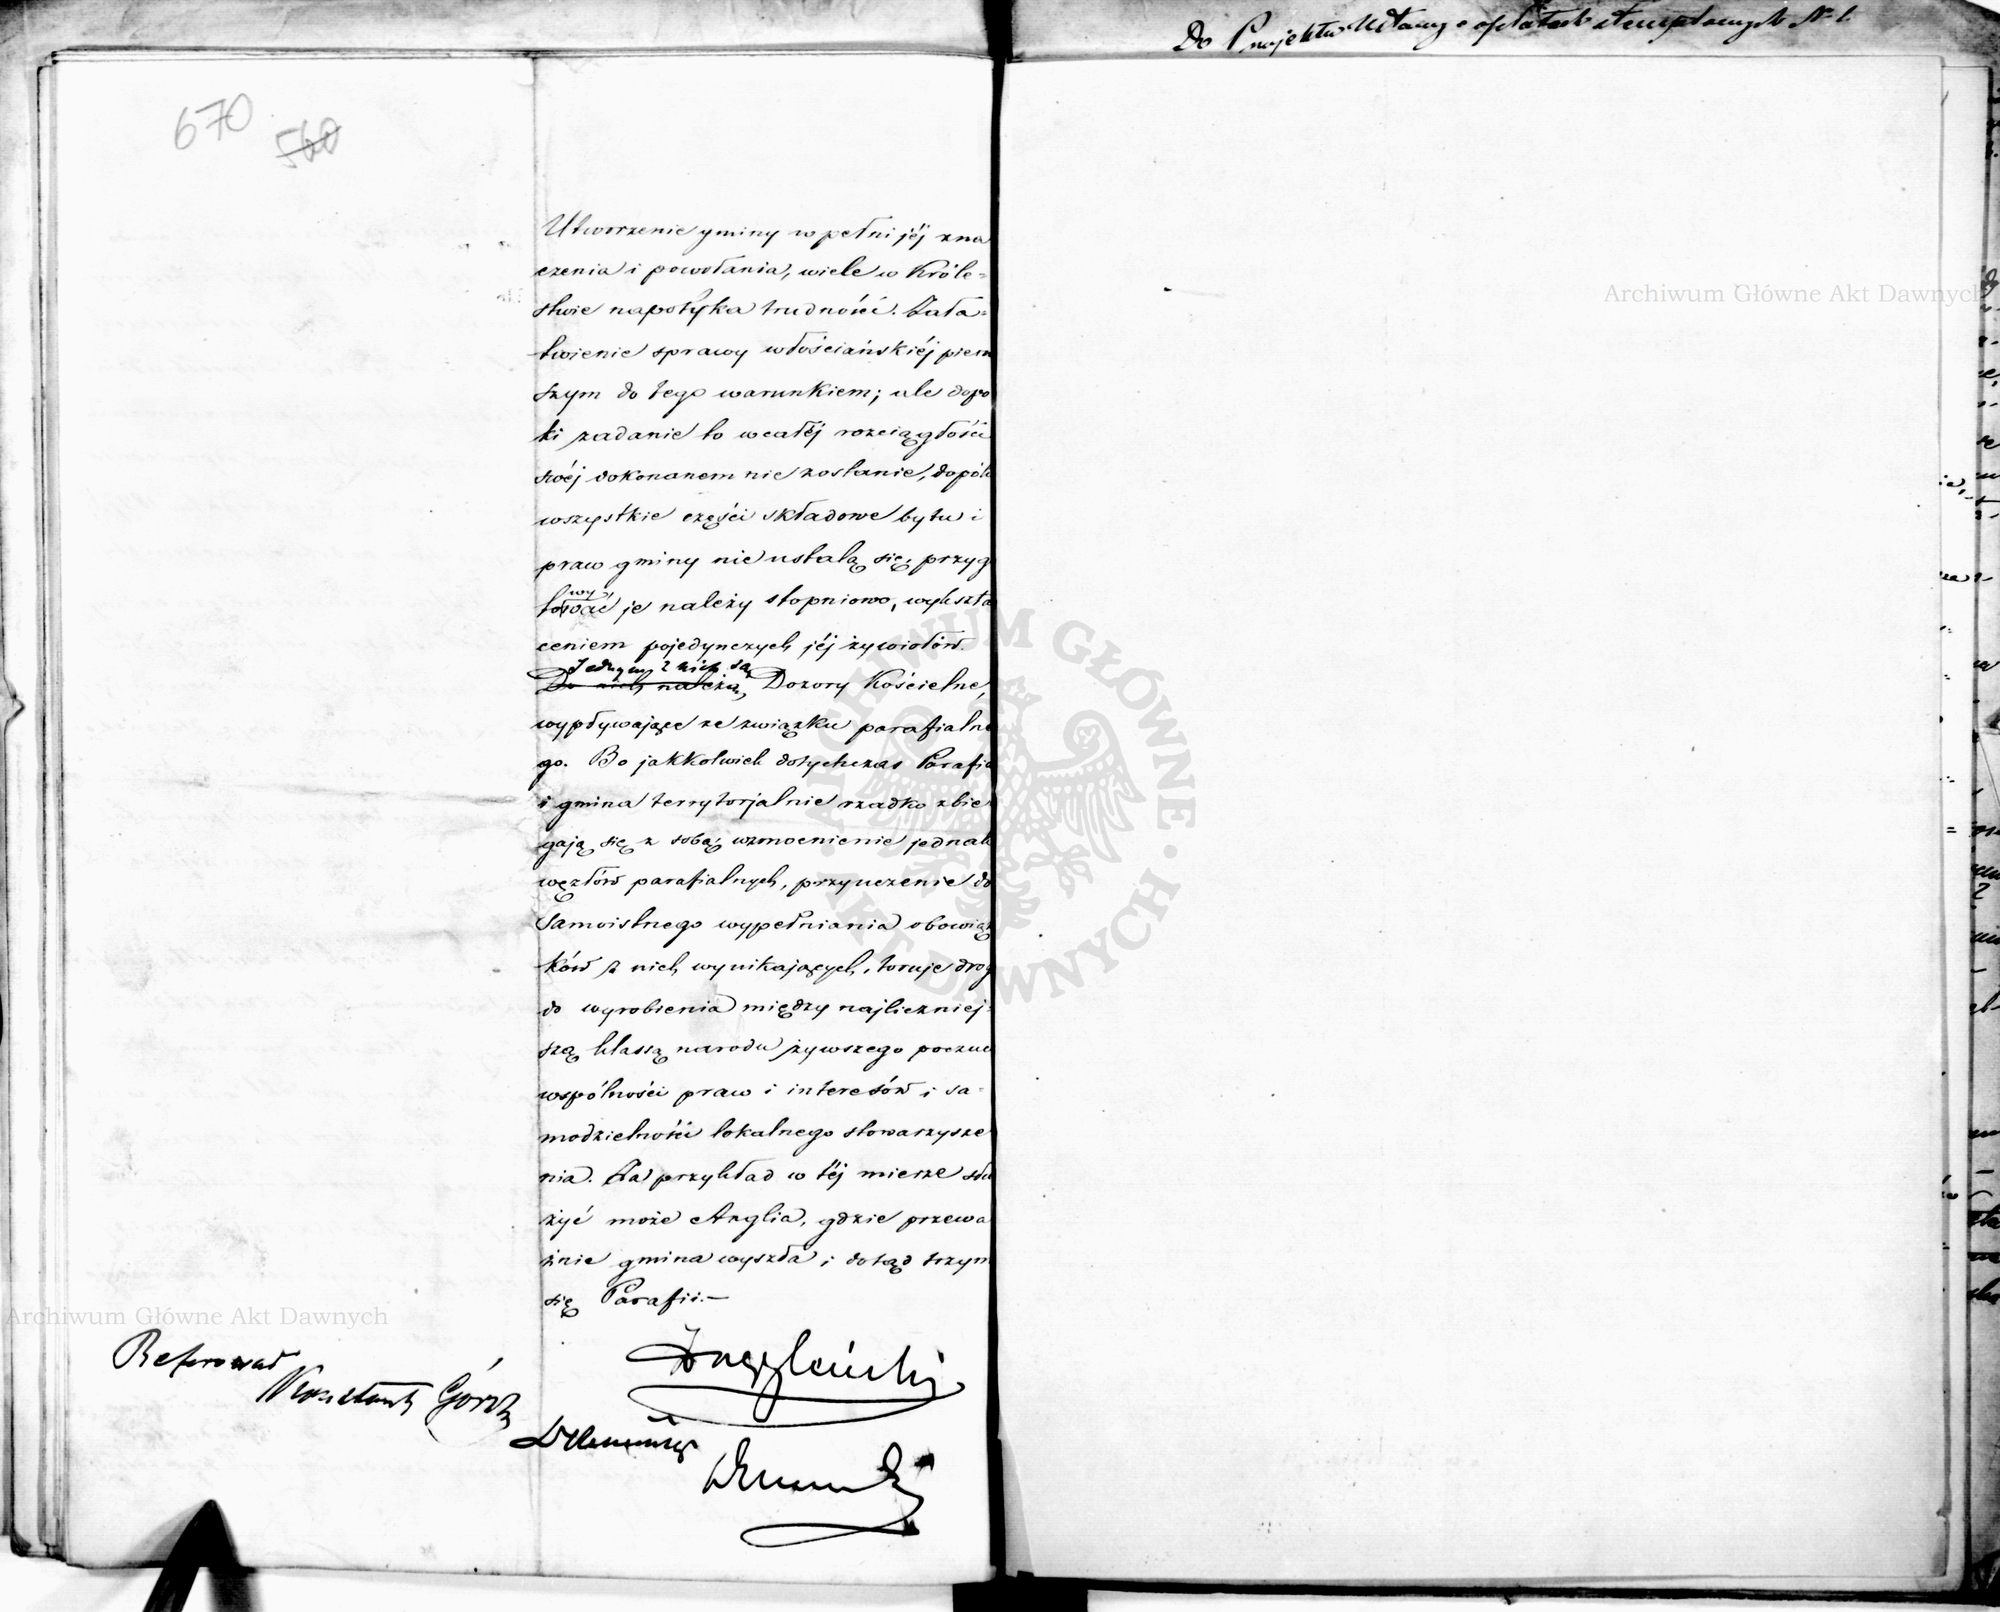 Do Projektu Ustawy o opłatach stemplowych N 1.
670
560
Utworzenie gminy w pełni jéj zna
czenia i powołania, wiele w Króle=
stwie napotyka trudności. Zała=
twienie sprawy włościańskiéj pierw
szym do tego warunkiem; ale dopó
ki zadanie to w całéj rozciągłości
swéj dokonanem nie zostanie, dopók
wszystkie części składowe bytu i
praw gminy nie ustalą się, przyg
towywać je należy stopniowo, wykszta
ceniem pojedynczych jéj żywiołów.
Jednym z nich są
Do nich należą, Dozory Kościelne,
wypływające ze związku parafialne
go. Bo jakkolwiek dotychczas Parafia
i gmina terrytorjalnie rzadko zbie
gają się z sobą; wzmocnienie jednak
węzłów parafialnych, przyuczenie do
samoistnego wypełniania obowiąz
ków z nich wynikających, toruje drog
do wyrobienia między najliczniej=
szą klassą narodu żywszego poczuc
wspólności praw i interesów i sa=
modzielności lokalnego stowarzysze
nia. Za przykład w téj mierze słu
żyć może Anglia, gdzie przewa
żnie gmina wyszła i dotąd trzym
się Parafii.—
Referował
Konstanty Górski
Archiwum Główne Akt Dawnych
Archiwum Główne Akt Dawnych
ARCHIWUM GŁÓWNE · AKT DAWNYCH ·